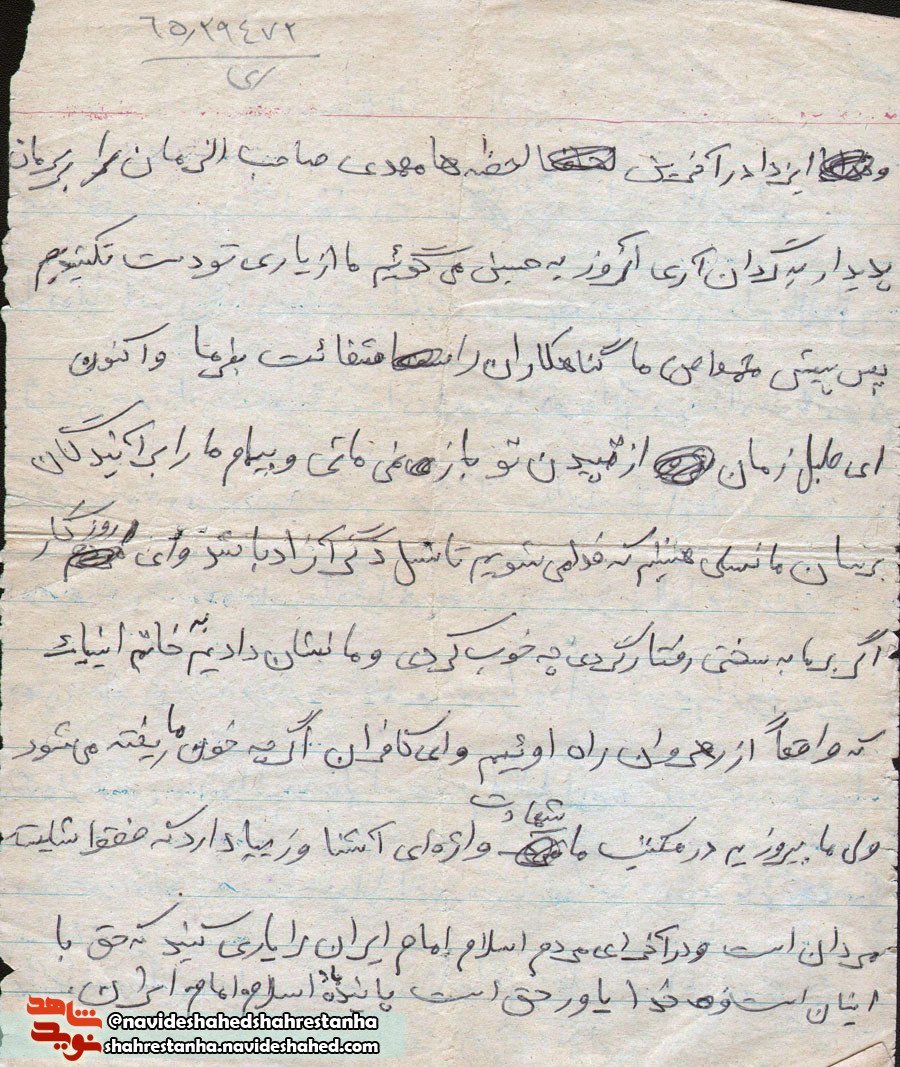 ٦٥٫٢٩٤٧٢
ری
و ایزدا در آخرین لحظه ها مهدی صاحب الزمان را بر بریمان
پدیدار به گردان آری امروز به حسین می گوئیم ما از یاری تو دست نکشیدیم
پس پیش ما گناهکاران را شفائت بفرما و اکنون
ای طبل زمان از طپیدن تو باز نمی مانی و پیام ما را بر آیندگان
برسان ما نسلی هستیم که فدا می شویم تا نسل دگر آزاد باشد و ای روزگار
اگر بر ما به سختی رفتار کردی چه خوب کردی و ما نشان دادیم به خاتم انبیاء
که واقعاً از رهروان راه اوئیم و ای کافران اگرچه خون ما ریخته می شود
ولی ما پیروزیم در مکتب ما شهادت واژه ای آشنا و زیبا دارد که فقط شایسته
مردان است و در آخر ای مردم اسلام امام ایران را یاری کنید که حق با
اینان است و خدا یاور حق است پاینده باد اسلام امام ایران
شاهد
نوید
@navideshahedshahrestanha
shahrestanha.navideshahed.com